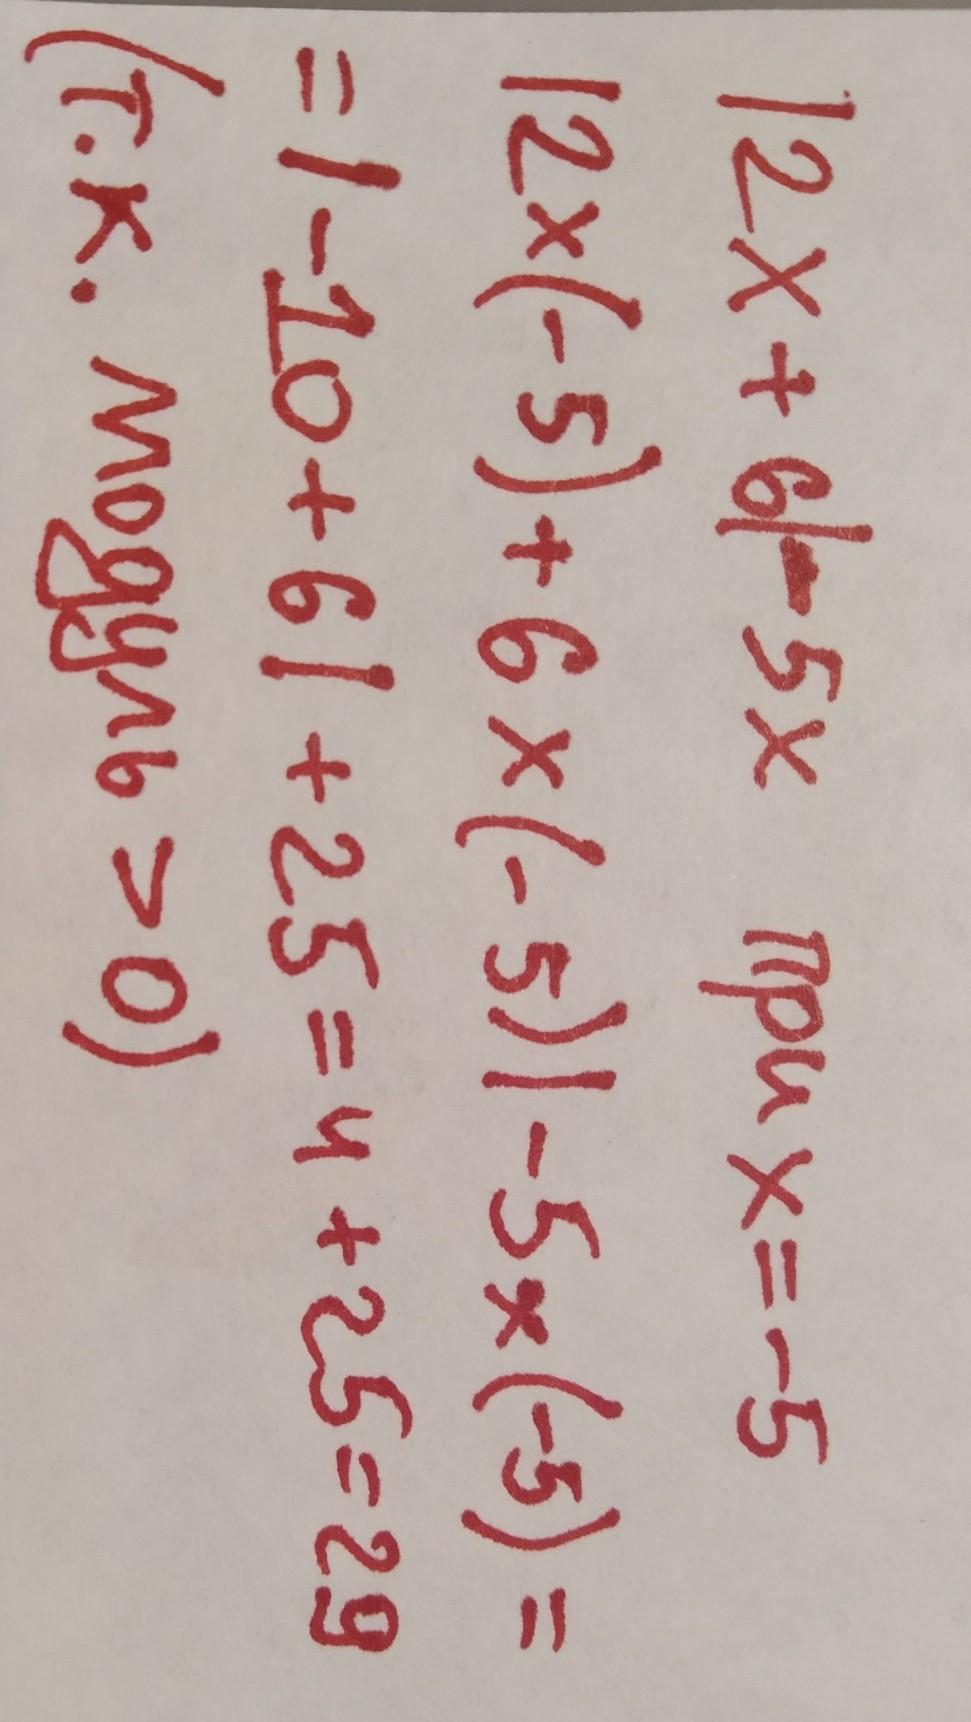 |2x+6|-5x при x=-5
|2x(-5)+6x(-5)|-5x(-5)=
=|-10+6|+25=4+25=29
(т.к. модуль >0)